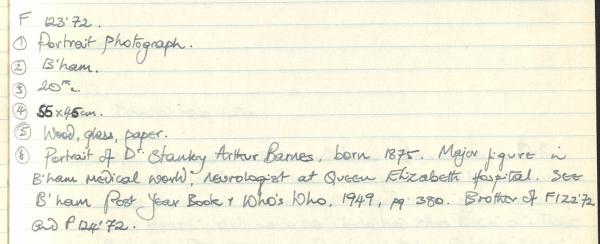 F 123'72.
① Portrait photograph.
② B'ham.
③ 20th c.
④ 55 x 45 cm.
⑤ Wood, glass, paper.
⑥ Portrait of Dr. Stanley Arthur Barnes, born 1875. Major figure in
B'ham medical world, neurologist at Queen Elizabeth Hospital. SEE
B'ham Post Year Book & Who's Who, 1949, pg 380. Brother of F122'72
and F124'72.